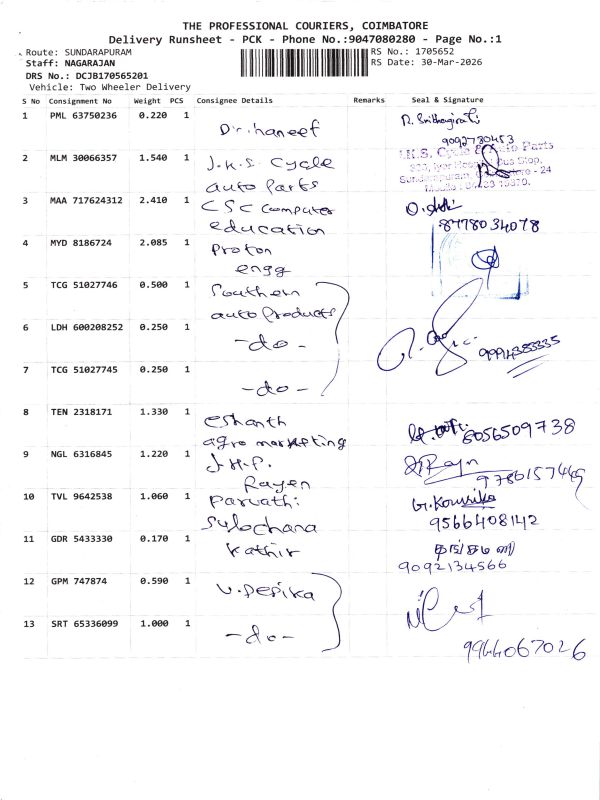 THE PROFESSIONAL COURIERS, COIMBATORE
Delivery Runsheet - PCK - Phone No.:9047080280 - Page No.:1
Route: SUNDARAPURAM
RS No.: 1705652
Staff: NAGARAJAN
RS Date: 30-Mar-2026
DRS No.: DCJB170565201
Vehicle: Two Wheeler Delivery
S No Consignment No Weight PCS Consignee Details Remarks Seal & Signature
1 PML 63750236 0.220 1
Dr.haneef
9092730453
2 MLM 30066357 1.540 1 J.K.S. Cycle
auto Parts
3 MAA 717624312 2.410 1 CSC Computer
education 8778034078
4 MYD 8186724 2.085 1 Proton
engg
5 TCG 51027746 0.500 1 Southern
auto Products
6 LDH 600208252 0.250 1 -do-
7 TCG 51027745 0.250 1
-do-
8 TEN 2318171 1.330 1 eshanth
8056509738
agro marketing
9 NGL 6316845 1.220 1 J.H.P.
Rayen
10 TVL 9642538 1.060 1 Parvathi
G. Kousika
Sulochana 9566408142
11 GDR 5433330 0.170 1 Kathir தங்கமணி
9092134566
12 GPM 747874 0.590 1 V. Depika
13 SRT 65336099 1.000 1 -do-
9944067026